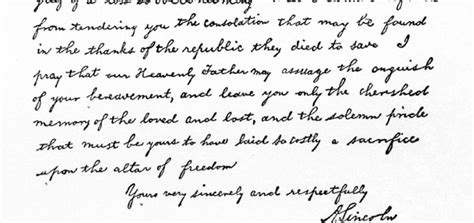 of a loss so
from tendering you the consolation that may be found
in the thanks of the republic they died to save I
pray that our Heavenly Father may assuage the anguish
of your bereavement, and leave you only the cherished
memory of the loved and lost, and the solemn pride
that must be yours to have laid so costly a sacrifice
upon the altar of freedom
Yours very sincerely and respectfully
A. Lincoln